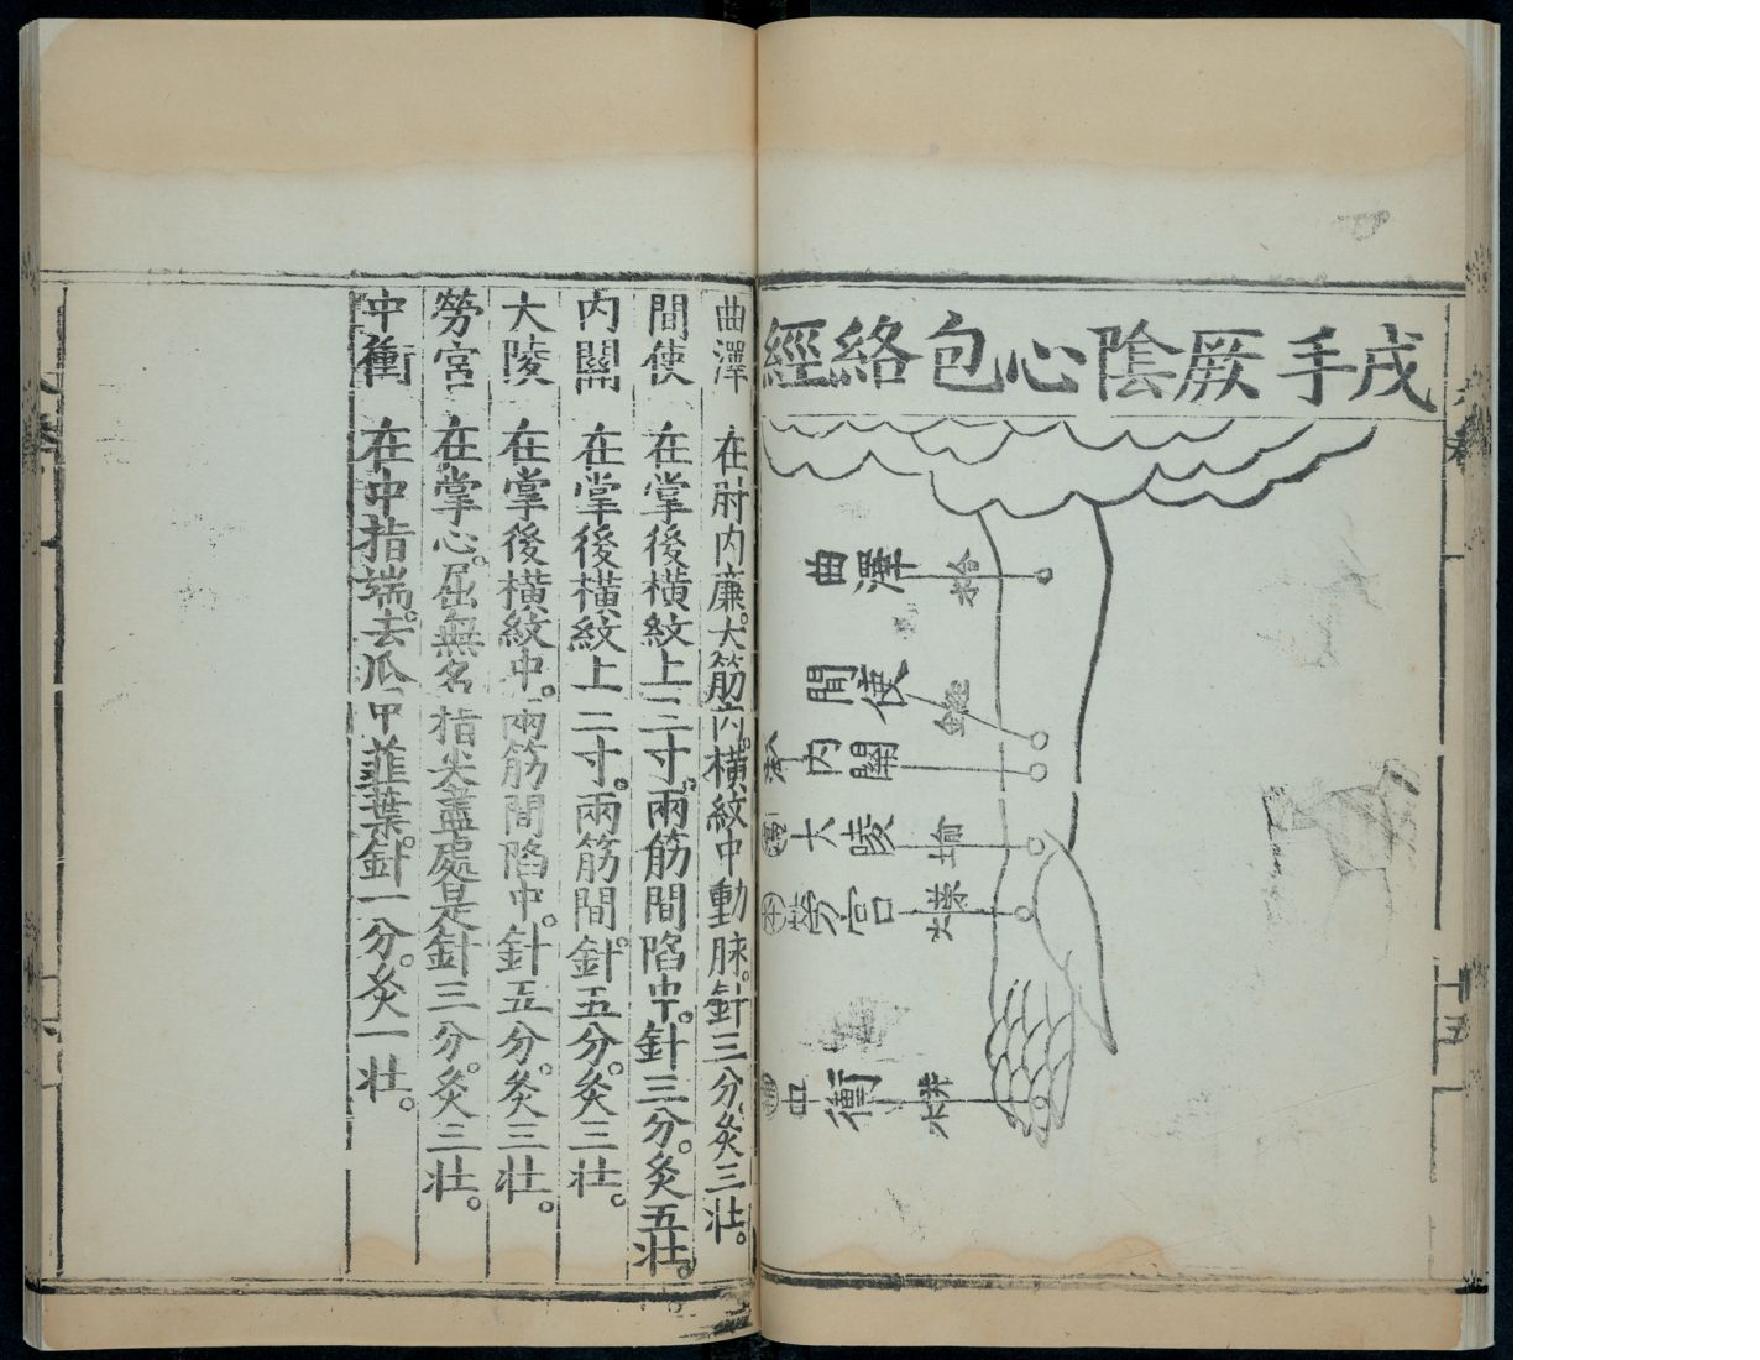 戌手厥陰心包絡經
曲澤
合水
間使
金經
内關
大陵
土俞
勞宮
火榮
中衝
木井
十五
曲澤 在肘内廉。大筋内。横紋中動脉。針三分。灸三壯。
間使 在掌後横紋上三寸。兩筋間陷中。針三分。灸五壯。
内關 在掌後横紋上二寸。兩筋間。針五分。灸三壯。
大陵 在掌後横紋中。兩筋間陷中。針五分。灸三壯。
勞宮 在掌心。屈無名指尖盡處是針三分。灸三壯。
中衝 在中指端。去爪甲韮葉。針一分。灸一壯。